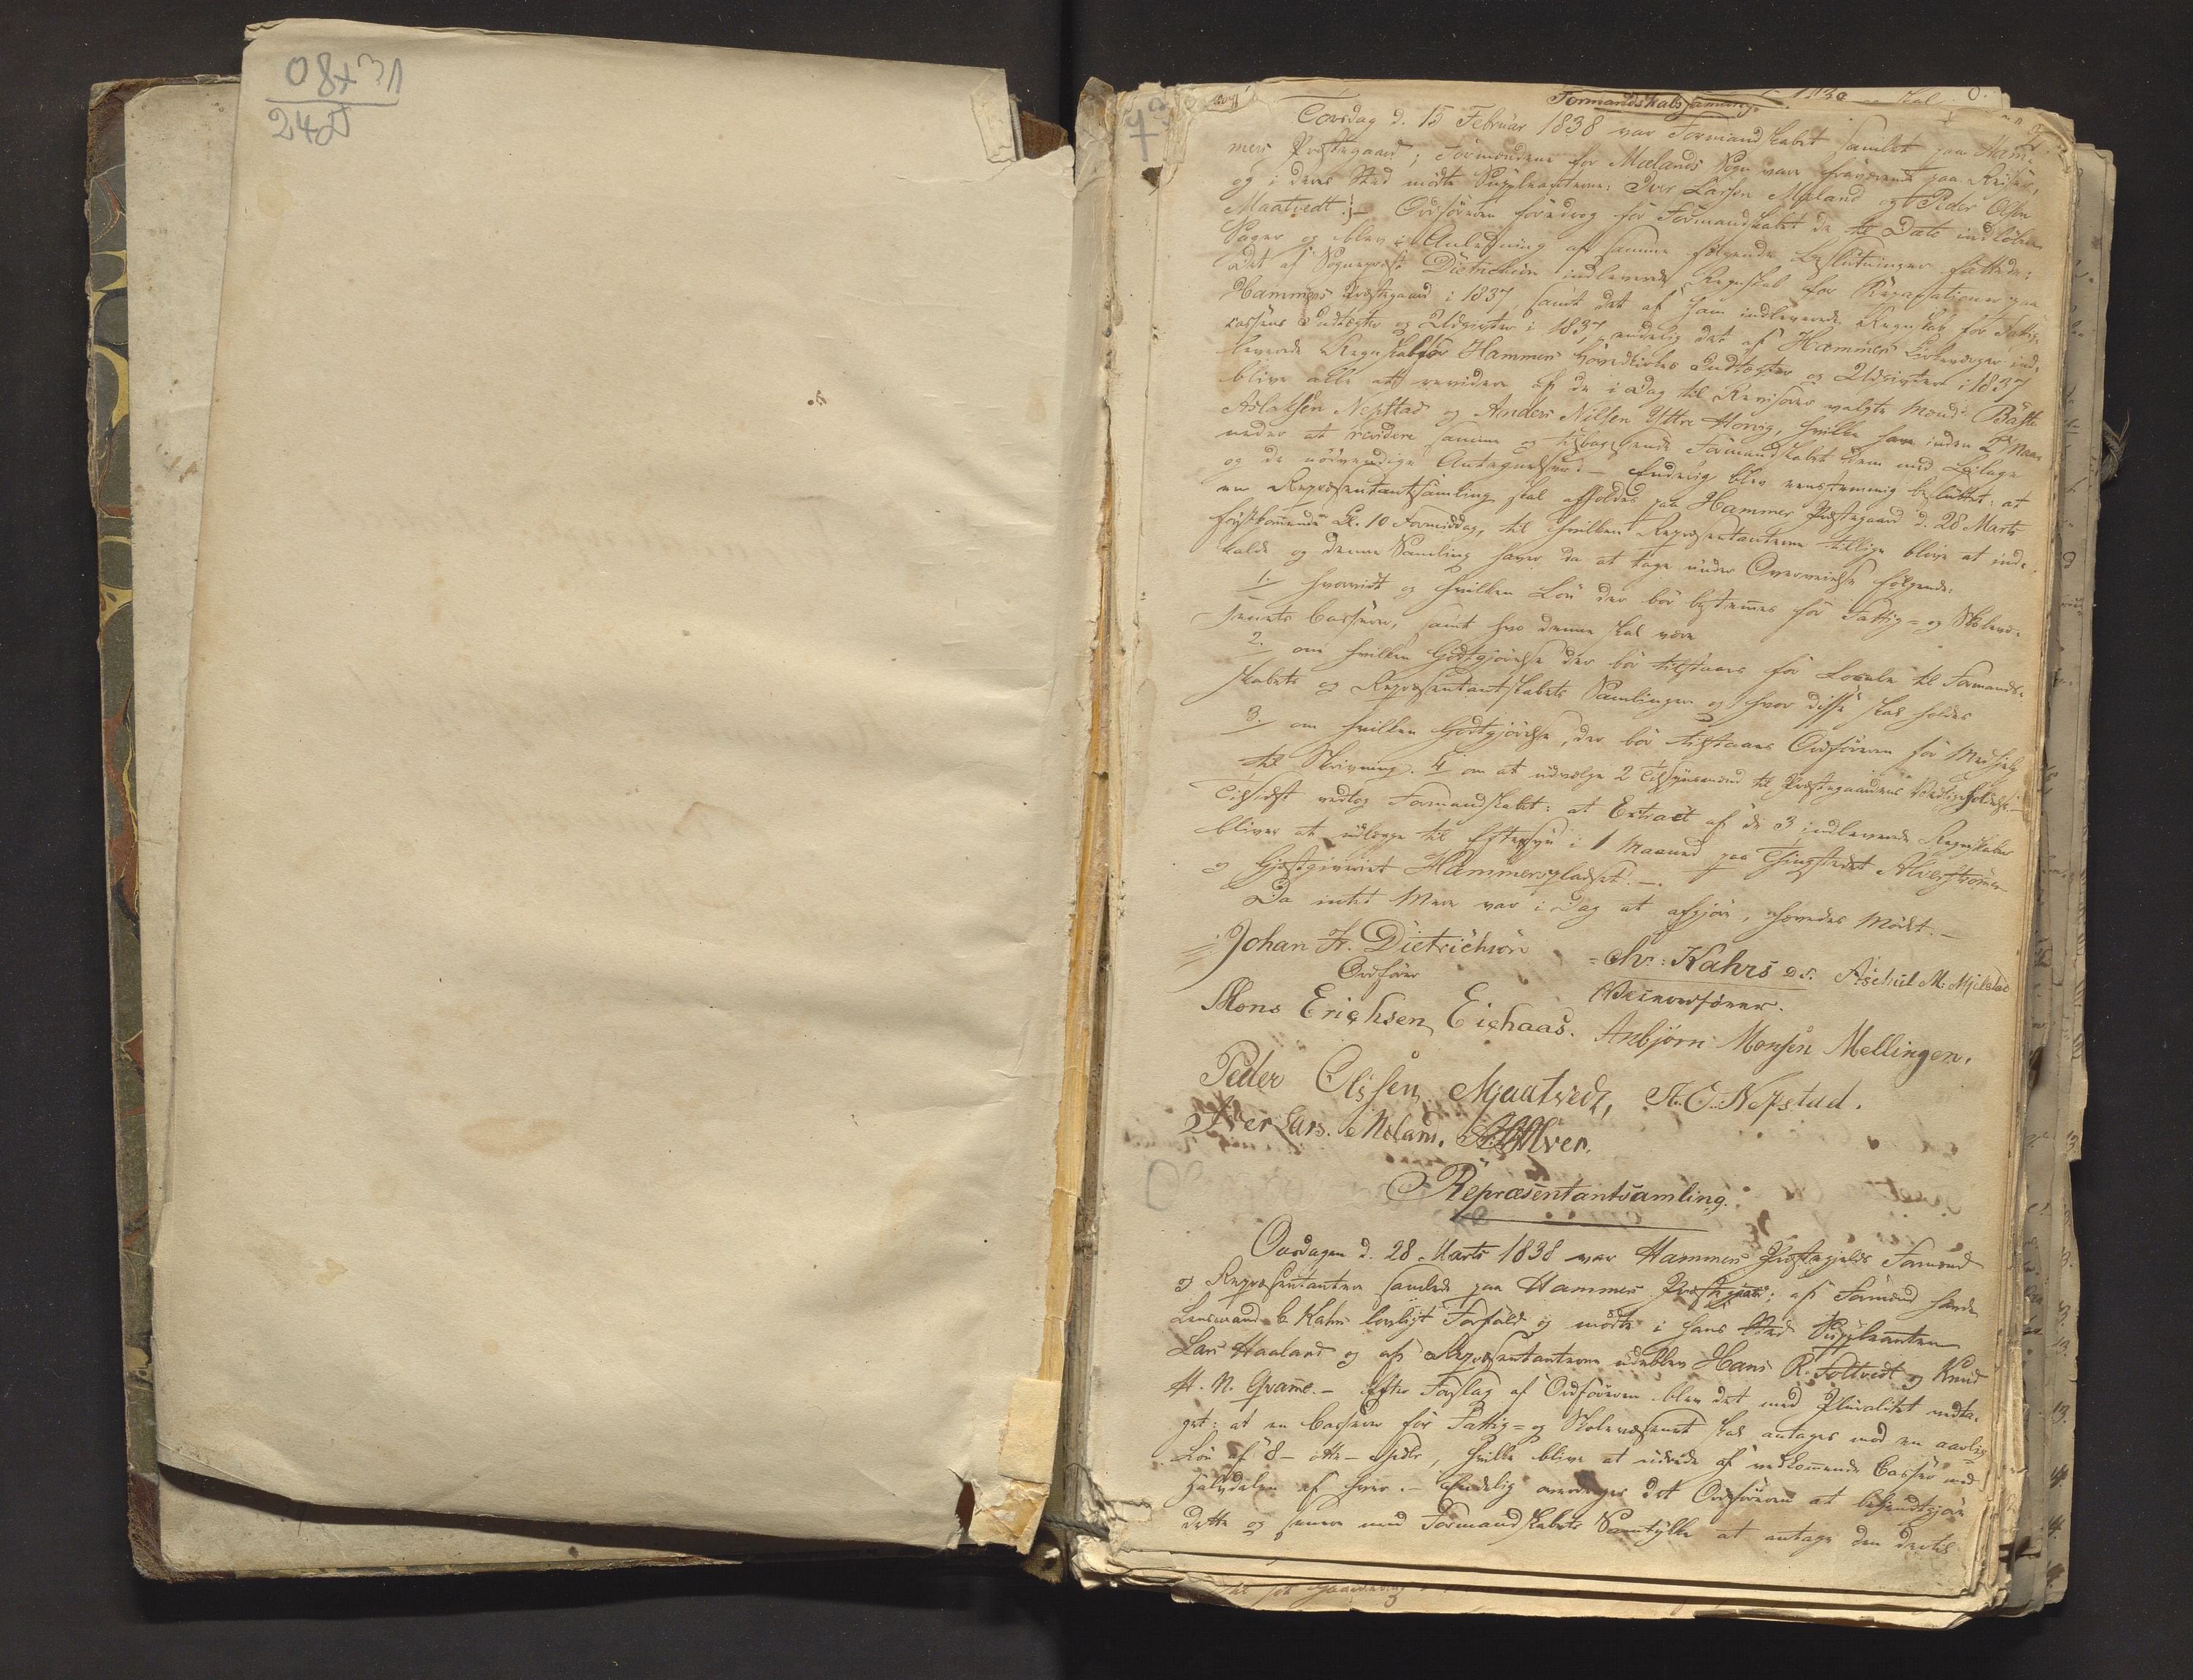 08+31
240
Formandskabssamling.
Torsdag d. 15 Februar 1838 var Formandskabet samlet paa Ham-
mers Præstegaard; Formændene for Mælands Sogn vare fraværende paa Reiser,
og i deres Sted mødte Suppleanterne: Iver Larsen Mæland og Peder Olsen
Maatvedt. – Ordføreren foredrog for Formandskabet de til Dato indløbne
Sager og blev i Anledning af samme følgende Beslutninger fattede:
det af Sognepræst Dietrichson indleverede Regnskab for Reparationer paa
Hammers Præstegaard i 1837, samt det af ham indleverede Regnskab for Fattig-
cassens Indtægter og Udgivter i 1837, endelig det af Hammers Kirkeværger ind-
leverede Regnskab for Hammers Hovedkirkes Indtægter og Udgivter i 1837
blive alle at revidere af de i Dag til Revisorer valgte Mænd:
Aslaksen Nepstad og Anders Nilsen Yttre Horvig, hvilke have inden 2 Maa-
neder at revidere samme og tilbagesende Formandskabet dem med Bilage
og de nødvendige Antegnelser. – Endelig blev eenstemmig besluttet: at
en Repræsentantsamling skal afholdes paa Hammers Præstegaard d. 28 Marts
førstkommende Kl. 10 Formiddag, til hvilken Repræsentanterne tillige blive at ind-
kalde og denne Samling haver da at tage under Overveielse følgende:
1. hvorvidt og hvilken Løn der bør bestemmes for Fattig- og Skolevæ-
senets Casserer, samt hvo denne skal være
2. om hvilken Godtgjørelse der bør tilstaaes for Locale til Formand-
skabets og Repræsentantskabets Samlinger og hvor disse skal holdes
3. om hvilken Godtgjørelse, der bør tilstaaes Ordføreren for Medhjelp
til Skrivning. 4 om at udvælge 2 Tilsynsmænd til Præstegaardens Vedligeholdelse. –
Tilsidst vedtog Formandskabet: at Extract af de 3 indleverede Regnskaber
bliver at udlægge til Eftersyn i 1 Maaned paa Thingstedet Alverstrømmen
og Gjæstgiveriet Hammerspladset. –
Da intet Mere var i Dag at afgjøre, hævedes Mødet. –
Johan Fr. Dietrichson
Ordfører
Chr: Kahrs
Viceordfører.
Mons Erichsen Eichaas.
Anbjørn Monsen Mellingen.
Peder Olssen Mjaatvedt, A. O. Nepstad.
Iver Lars. Meland. Alver.
Repræsentantsamling.
Onsdagen d. 28 Marts 1838 var Hammers Præstegjelds Formænd
og Repræsentanter samlede paa Hammers Præstegaard; af Formænd havde
Lensmand Kahrs lovligt Forfald og mødte i hans Sted Suppleanten
Lars Haaland og af Repræsentanterne udeblev Hans R. Toltvedt og Knud
H. N. Qvamme. – Efter Forslag af Ordføreren blev det med Pluralitet vedta-
get: at en Casserer for Fattig- og Skolevæsenet skal antages med en aarlig
Løn af 8 – otte – Spdlr, hvilke blive at udrede af vedkommende Casser med
Halvdelen af hver. – Endelig overdrages det Ordføreren at bekjendtgjøre
dette og senere med Formandskabets Samtykke at antage den dertil